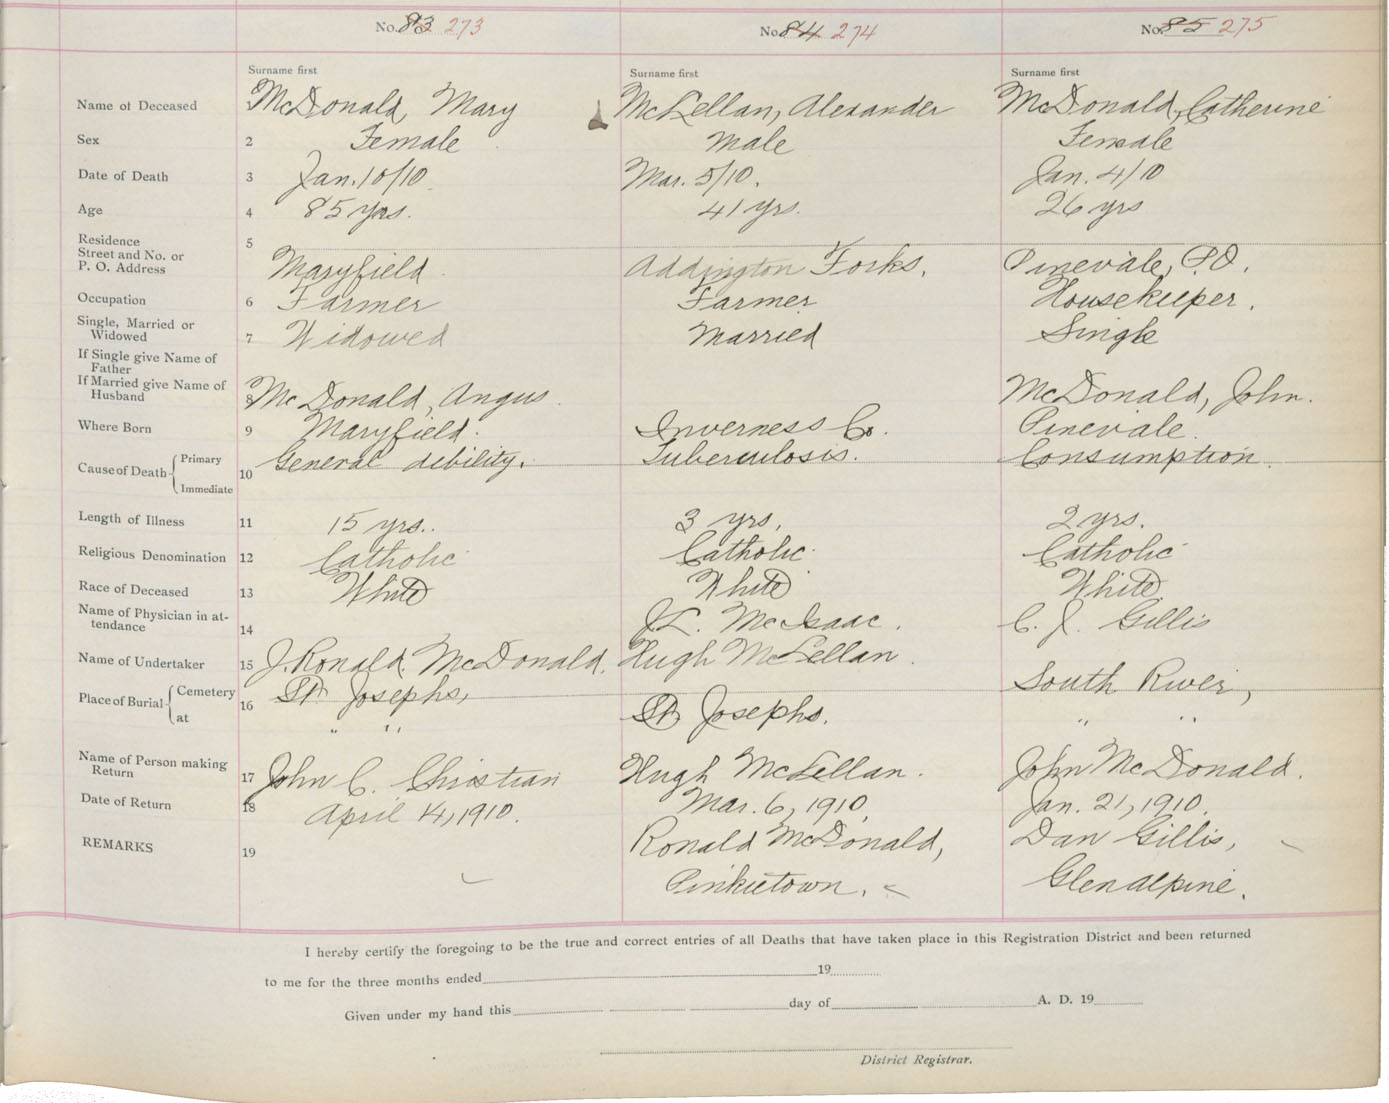 No. 83 273 No. 84 274 No. 85 275
Surname first Surname first Surname first
Name of Deceased 1 McDonald, Mary McLellan, Alexander McDonald, Catherine
Sex 2 Female Male Female
Date of Death 3 Jan. 10/10 Mar. 5/10. Jan. 4/10
Age 4 85 yrs. 41 yrs. 26 yrs
Residence 5
Street and No. or
P. O. Address Maryfield Addington Forks. Pinevale, P.O.
Occupation 6 Farmer Farmer Housekeeper.
Single, Married or
Widowed 7 Widowed Married Single
If Single give Name of
Father
If Married give Name of
Husband 8 McDonald, Angus. McDonald, John.
Where Born 9 Maryfield. Inverness Co. Pinevale.
Cause of Death Primary General debility. Tuberculosis. Consumption.
10
Immediate
Length of Illness 11 15 yrs.. 3 yrs. 2 yrs.
Religious Denomination 12 Catholic Catholic. Catholic
Race of Deceased 13 White White White
Name of Physician in at-
tendance 14 J.L. McIsaac. C. J. Gillis
Name of Undertaker 15 J. Ronald McDonald. Hugh McLellan.
Place of Burial Cemetery 16 St Josephs, St Josephs. South River,
at " " " "
Name of Person making
Return 17 John C. Christian Hugh McLellan. John McDonald.
Date of Return 18 April 4, 1910. Mar. 6, 1910. Jan. 21, 1910.
REMARKS 19 Ronald McDonald, Dan Gillis,
Pinkietown. Glenalpine.
I hereby certify the foregoing to be the true and correct entries of all Deaths that have taken place in this Registration District and been returned
to me for the three months ended 19
Given under my hand this day of A. D. 19
District Registrar.